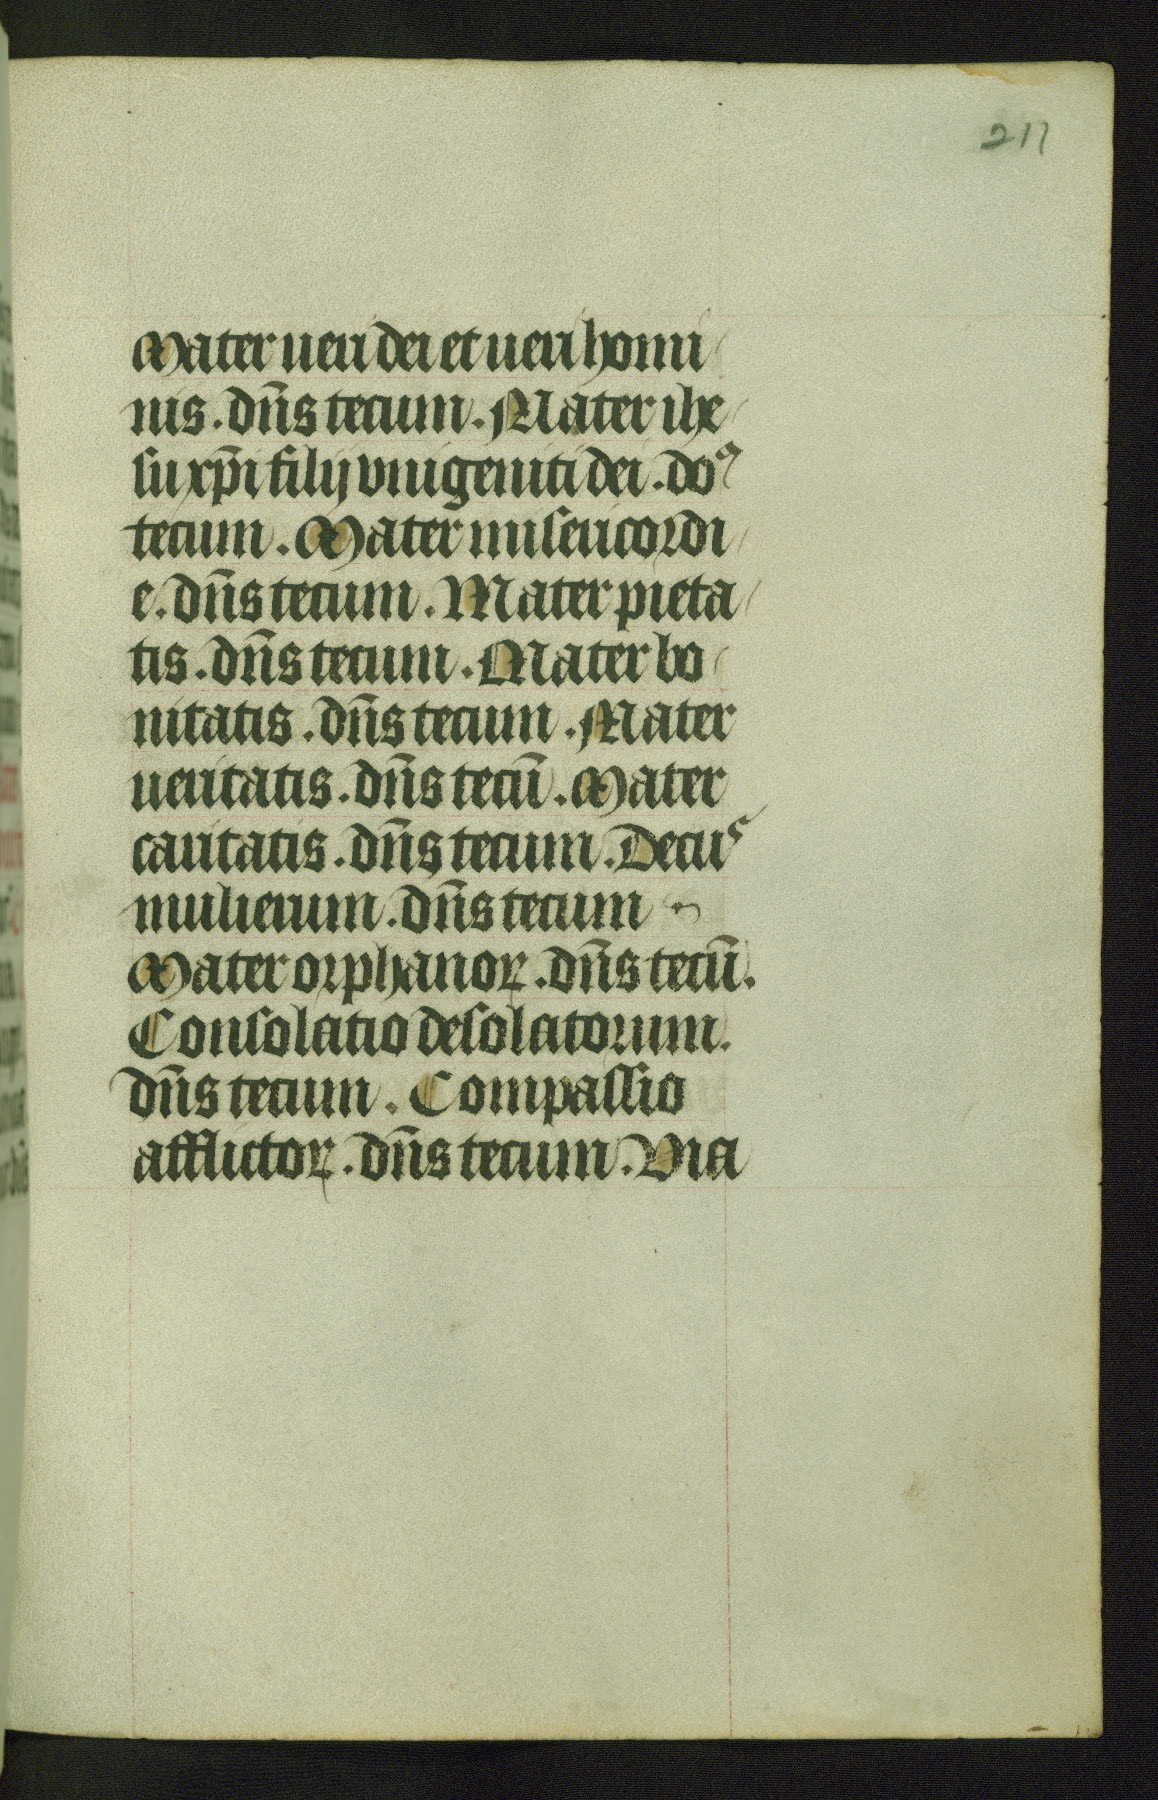 211
Mater ueri dei et ueri homi
nis. dn̄s tecum. Mater ihe
su xp̄i filij vnigeniti dei. doꝰ
tecum. Mater misericordi
e. dn̄s tecum. Mater pieta
tis. dn̄s tecum. Mater bo
nitatis. dn̄s tecum. Mater
ueritatis. dn̄s tecū. Mater
caritatis. dn̄s tecum. Decus
mulierum. dn̄s tecum
Mater orphanoꝝ. dn̄s tecū.
Consolatio desolatorum.
dn̄s tecum. Compassio
afflictoꝝ. dn̄s tecum. Via